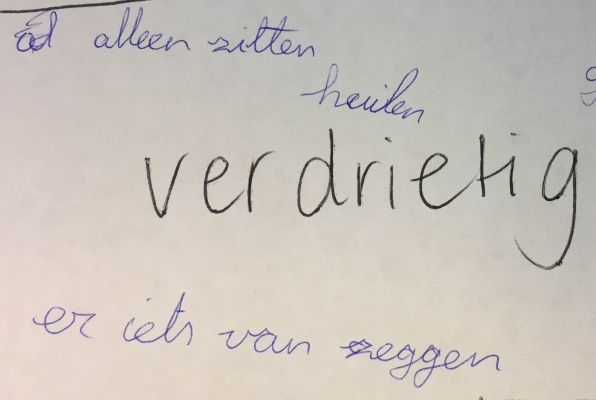 alleen zitten
heulen
verdrietig
er iets van zeggen